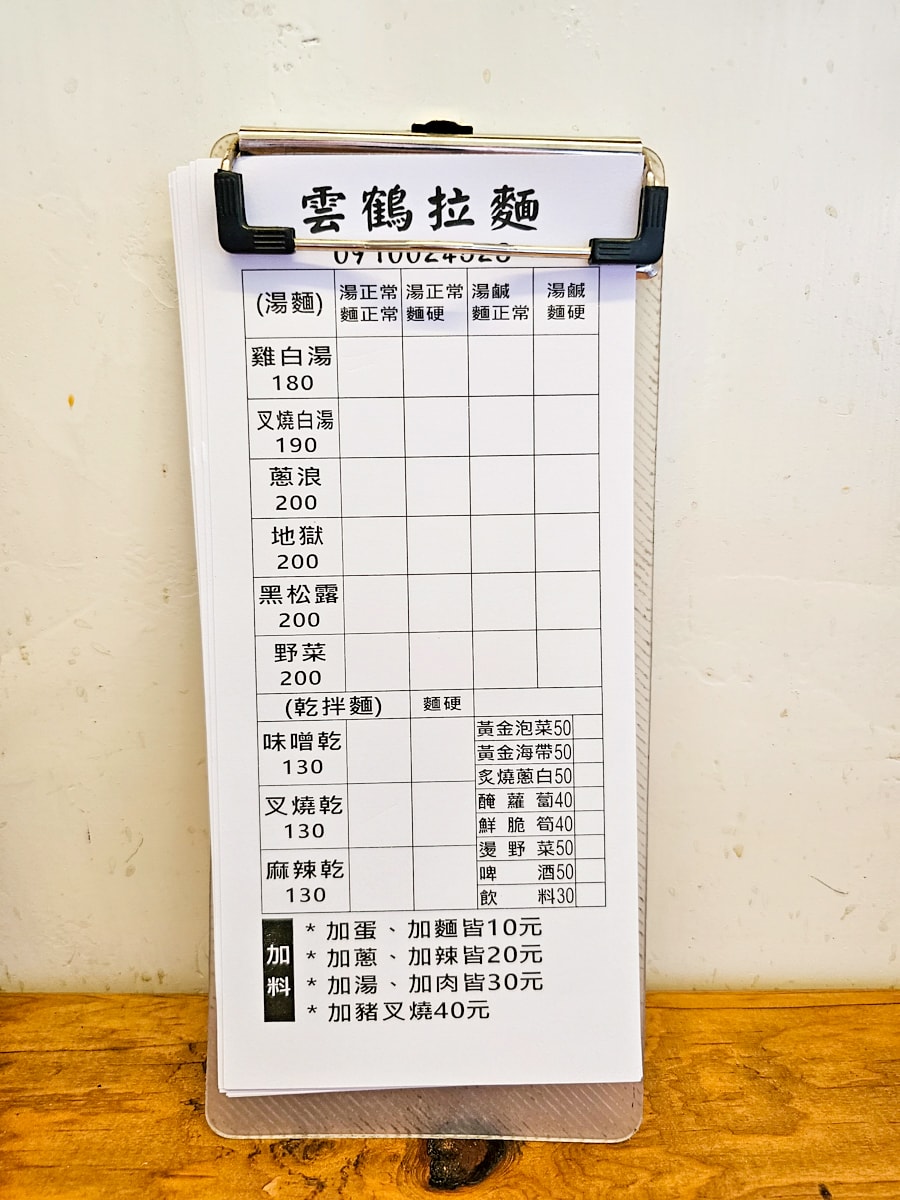 雲鶴拉麵
(湯麵) 湯正常麵正常 湯正常麵硬 湯鹹麵正常 湯鹹麵硬
雞白湯
180
叉燒白湯
190
蔥浪
200
地獄
200
黑松露
200
野菜
200
(乾拌麵) 麵硬
味噌乾
130
叉燒乾
130
麻辣乾
130
黃金泡菜50
黃金海帶50
炙燒蔥白50
醃蘿蔔40
鮮脆筍40
燙野菜50
啤酒50
飲料30
加料
* 加蛋、加麵皆10元
* 加蔥、加辣皆20元
* 加湯、加肉皆30元
* 加豬叉燒40元